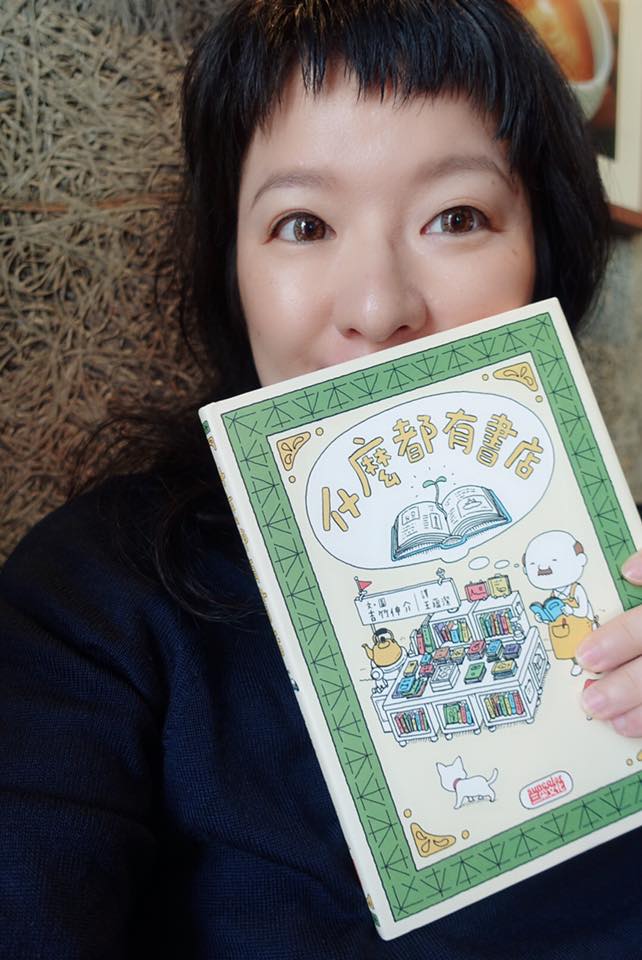 什麼都有書店
文・圖 譯
吉竹伸介 王蘊潔
suncolor
三采文化